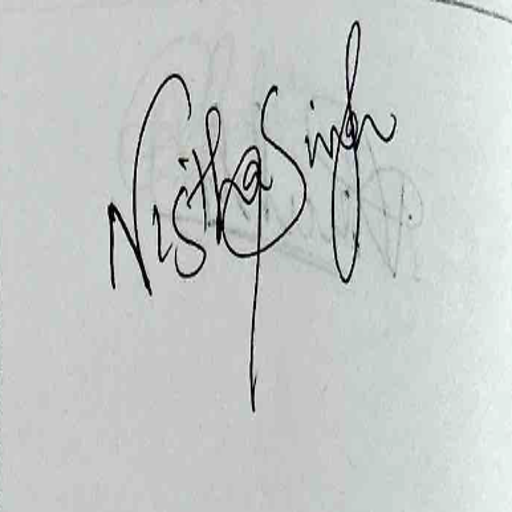 Nistha Singh